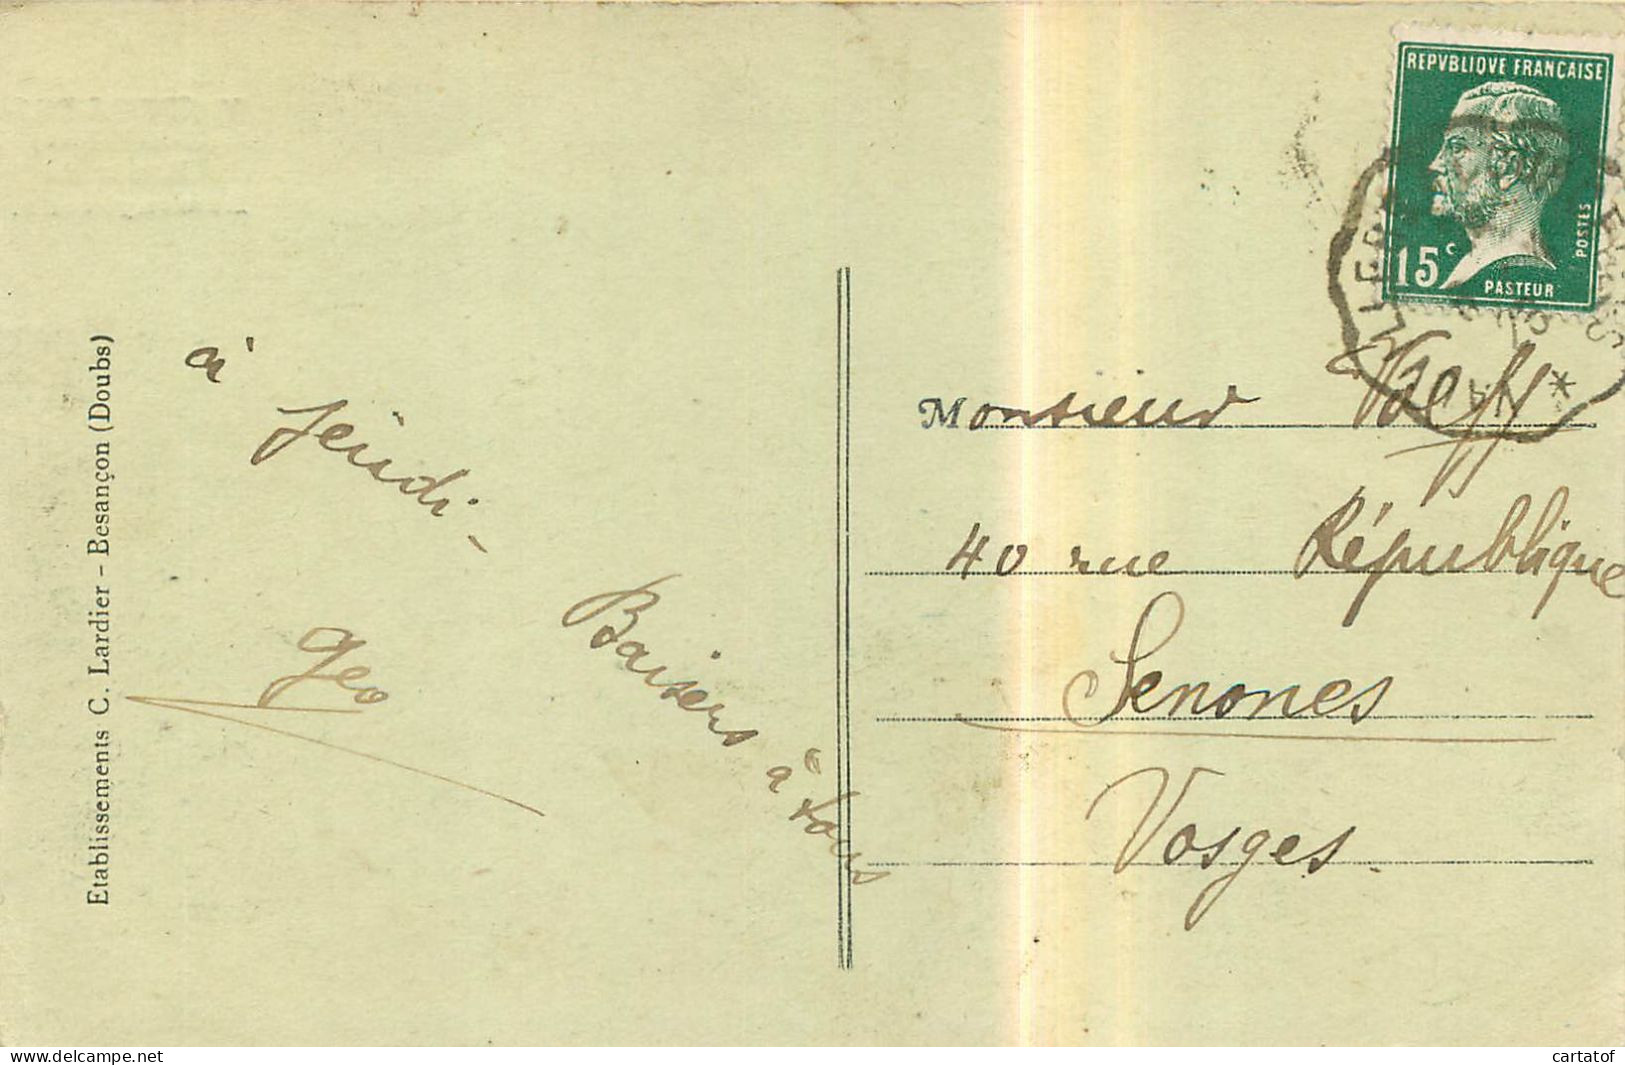 Etablissements C. Lardier - Besançon (Doubs)
à
jeudi -
Geo
Baisers à tous
REPVBLIQVE FRANCAISE
15c
POSTES
PASTEUR
Monsieur
40 rue République
Senones
Vosges.
cartatof